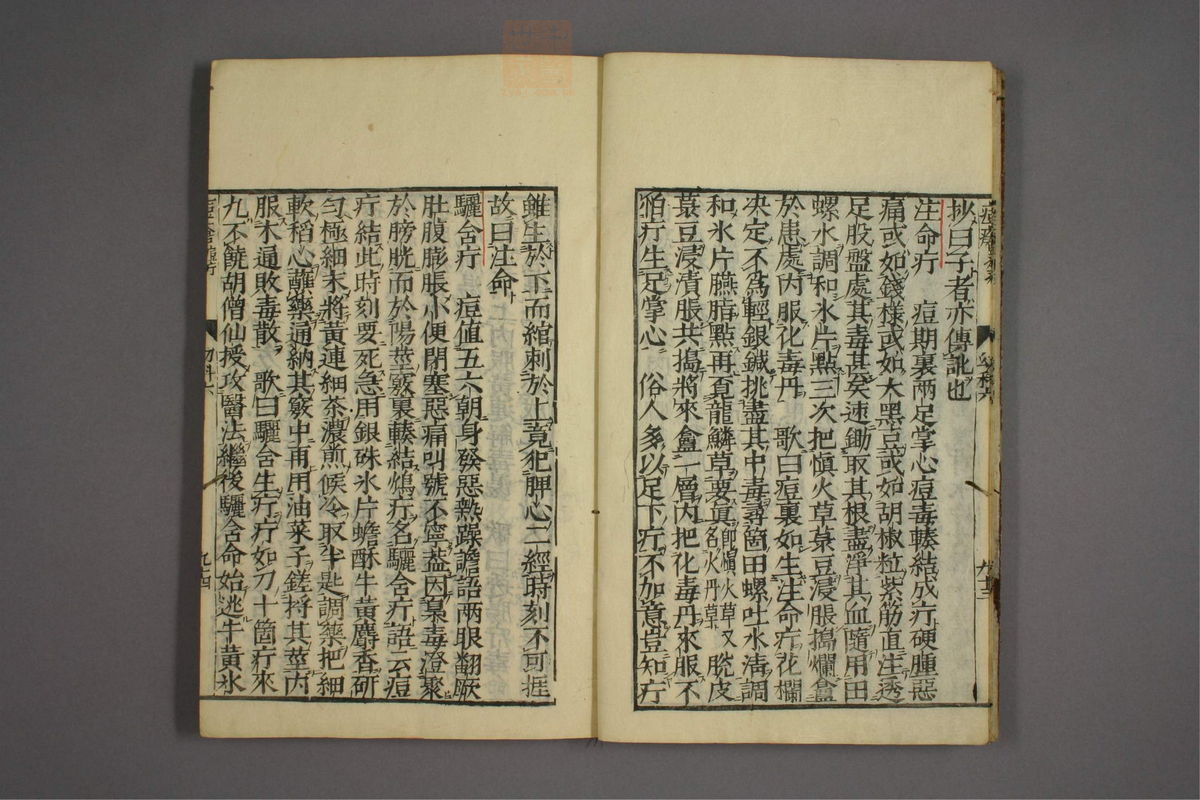 抄曰子者亦傳訛也
注命疔　痘期裏兩足掌心痘毒輳結成疔硬腫惡
痛或如錢樣或如大黑豆或如胡椒粒紫筋直生透
足股盤處其毒甚發速鋤取其根盡淨其血隨用田
螺水調和氷片點三次把愼火草菉豆浸脹搗爛盦
於患處內服化毒丹　歌曰痘裏如生注命疔花欄
决定不爲輕銀鍼挑盡其中毒尋箇田螺吐水淸調
和氷片臙脂點再覔龍鱗草要眞卽愼火草又名火丹草脫皮
菉豆浸漬脹共搗將來盦一層內把化毒丹來服不
怕疔生足掌心　俗人多以足下疔不加意豈知疔
雖生於下而綰刺於上竟犯脾心二經時刻不可捱
故曰注命
驪舍疔　痘值五六朝身發惡熱躁譫語兩眼翻厥
肚腹膨脹小便閉塞惡痛叫號不寧葢因裊毒澄聚
於膀胱而於陽莖竅裏輳結㷮疔名驪舍疔語云痘
疔結此時刻要死急用銀硃氷片蟾酥牛黃麝香研
勻極細末將黃連細茶濃煎候冷取半匙調藥把細
軟稻心蘸藥通納其竅中再用油菜子鎈捋其莖內
服木通敗毒散　歌曰驪舍生疔疔如刀十箇疔來
九不饒胡僧仙授攻醫法繼後驪舍命始逃牛黃氷
九十三
九十四